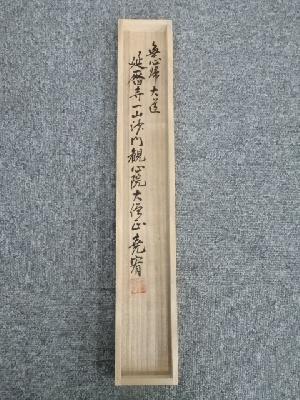 無心歸大道
延暦寺一山沙門観心院大僧正尭